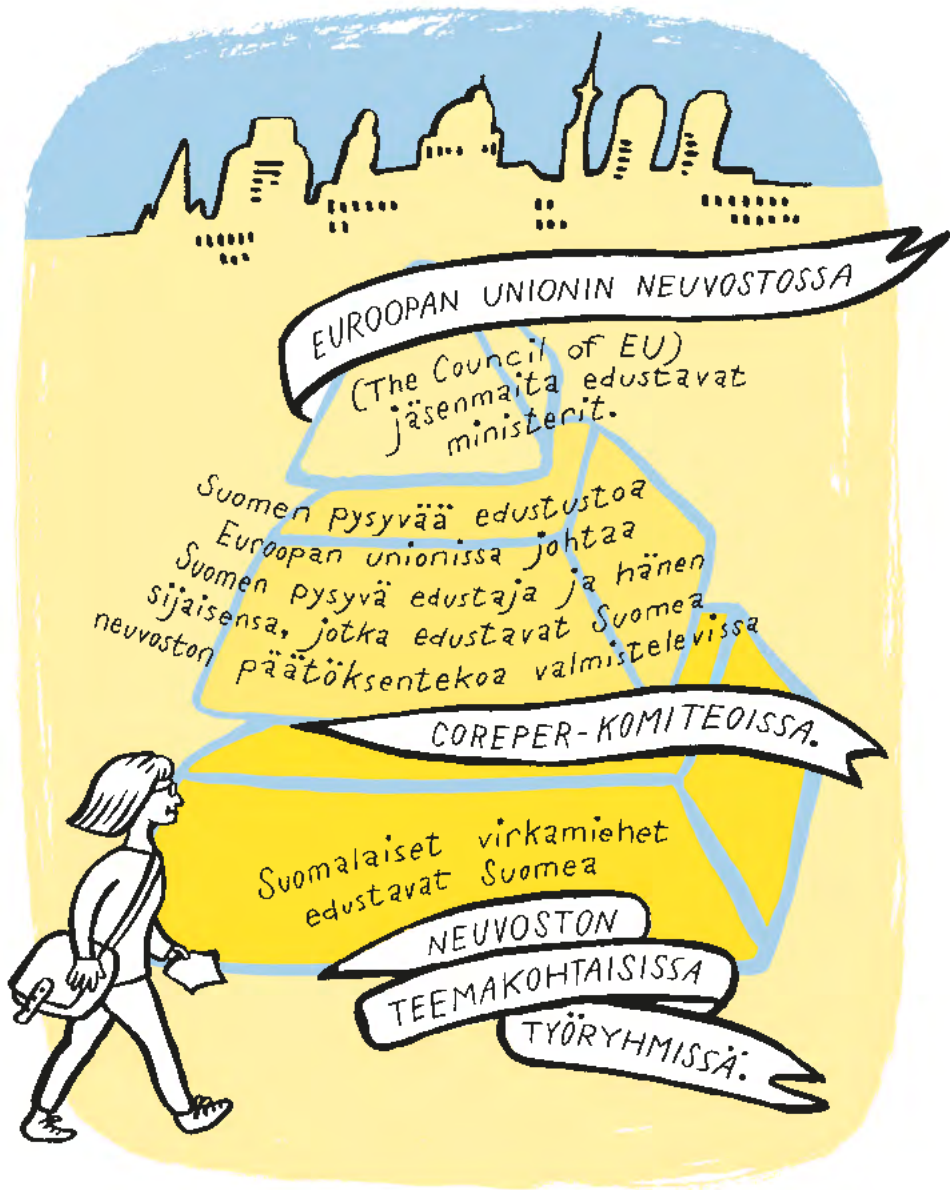 EUROOPAN UNIONIN NEUVOSTOSSA
(The Council of EU)
jäsenmaita edustavat
ministerit.
Suomen pysyvää edustustoa
Euroopan unionissa johtaa
Suomen pysyvä edustaja ja hänen
sijaisensa, jotka edustavat Suomea
neuvoston päätöksentekoa valmistelevissa
COREPER-KOMITEOISSA.
Suomalaiset virkamiehet
edustavat Suomea
NEUVOSTON
TEEMAKOHTAISISSA
TYÖRYHMISSÄ.